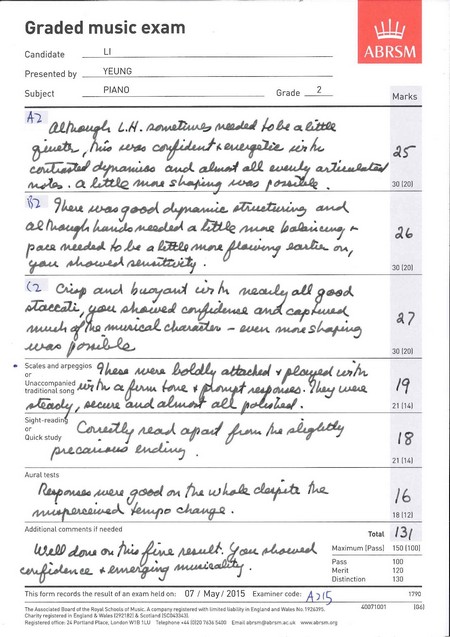 Graded music exam
ABRSM
Candidate LI
Presented by YEUNG
Subject PIANO Grade 2
Marks
A2
Although L.H. sometimes needed to be a little
quieter, this was confident + energetic with
contrasted dynamics and almost all evenly articulated
notes. A little more shaping was possible.
25
30 (20)
B2
There was good dynamic structuring and
although hands needed a little more balancing +
pace needed to be a little more flowing earlier on,
you showed sensitivity.
26
30 (20)
C2
Crisp and buoyant with nearly all good
staccati, you showed confidence and captured
much of the musical character – even more shaping
was possible
27
30 (20)
Scales and arpeggios
or
Unaccompanied
traditional song
These were boldly attacked + played with
with a firm tone + prompt responses. They were
steady, secure and almost all polished.
19
21 (14)
Sight-reading
or
Quick study
Correctly read apart from the slightly
precarious ending.
18
21 (14)
Aural tests
Responses were good on the whole despite the
misperceived tempo change.
16
18 (12)
Additional comments if needed
Well done on this fine result. You showed
confidence + emerging musicality.
Total 131
Maximum (Pass) 150 (100)
Pass 100
Merit 120
Distinction 130
This form records the result of an exam held on: 07 / May / 2015 Examiner code: A215 1790
The Associated Board of the Royal Schools of Music. A company registered with limited liability in England and Wales No.1926395.
Charity registered in England & Wales (292182) & Scotland (SC043343).
Registered office: 24 Portland Place, London W1B 1LU Telephone +44 (0)20 7636 5400 Email abrsm@abrsm.ac.uk www.abrsm.org
40071001 (06)